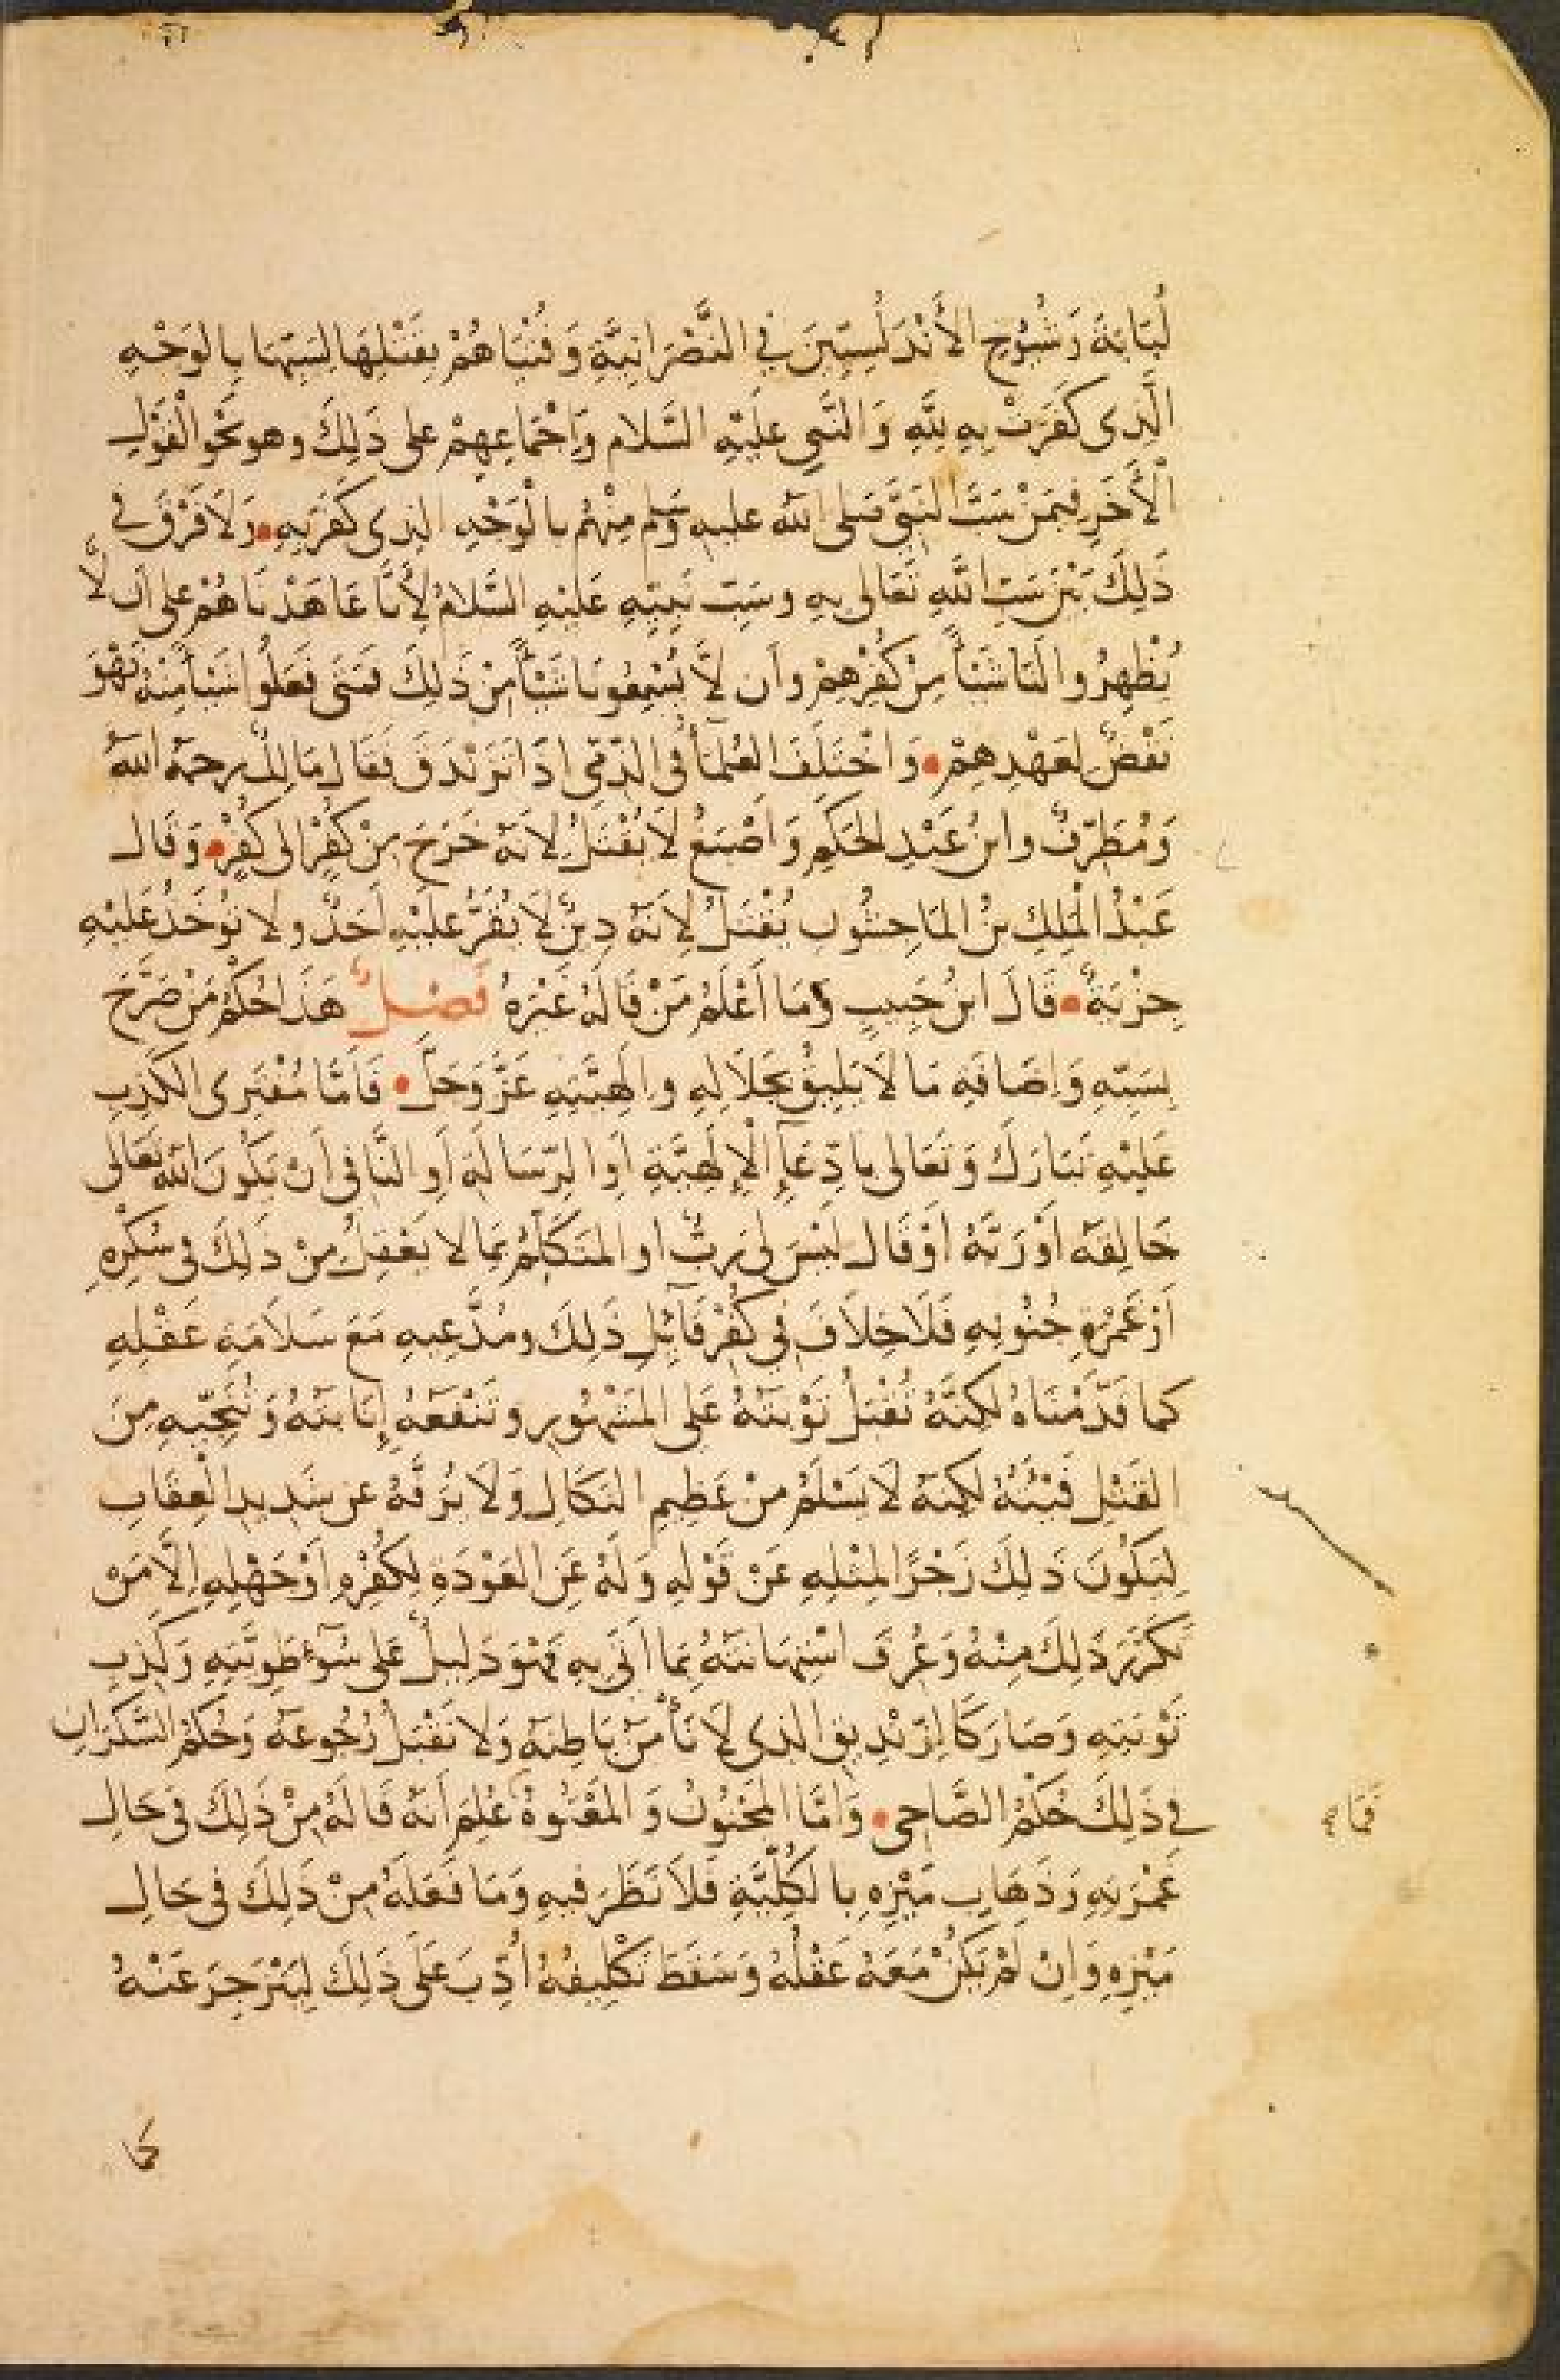 لُبَابَةَ وَشُيُوخِ الأَنْدَلُسِيِّينَ فِي النَّصْرَانِيَّةِ وَفُتْيَاهُمْ بِقَتْلِهَا لِسَبِّهَا بِالوَجْهِ
الَّذِى كَفَرَتْ بِهِ لِلَّهِ وَالنَّبِيِ عَلَيْهِ السَّلام وَاِجْمَاعِهِمْ على ذَلِكَ وهو نَحْو الْقَوْلِ
الْآخَرِ فيمَنْ سَبَّ النَبِيَّ صَلى الله عليهِ وَسَلم مِنْهُم بالْوَجْهِ الذِى كَفَرَ بِهِ • وَلَا فَرْقَ في
ذَلِكَ بَيْنَ سَبِّ اللَّهِ تَعَالى بِهِ وسَبِّ نَبِيِّهِ عَلَيْهِ السَّلامُ لِأَنَّا عَاهَدْنَاهُمْ على أن لَّا
يُظْهِرُوا لَنَا شَيْأً مِنْ كُفْرِهِمْ وأن لَّا يُسْمِعُونَا شَيْأً مِنْ ذَلِكَ فَمَتَى فَعَلُوا شَيْأً مِنْهُ فَهُوَ
نَقْضٌ لِعَهْدِهِمْ • وَاخْتَلَفَ العُلَمَآءُ فى الذِّمِّى اِذَا تَزَنْدَقَ فَقَالَ مَالِكٌ رحمَهُ اللهُ
وَمُطَرِّفٌ وابنُ عَبْدِ الحَكَمِ وَاَصْبَغُ لَا يُقْتَلُ لِاَنَهُ خَرَجَ مِنْ كُفْرٍ الى كُفْرٍ • وَقَالَ
عَبْدُ الْمَلِكِ بنُ المَاجِشُونِ يُقْتَلُ لِاَنَهُ دِينٌ لَا يُقَرُّ عَلَيْهِ اَحَدٌ ولا تُوْخَذُ عَلَيْهِ
جِزْيَةٌ • قَالَ ابنُ حَبِيبٍ وَمَا اَعْلَمُ مَنْ قَالَهُ غَيْرَهُ فَصْلٌ هَذَا حُكْمُ مَنْ صَرَّحَ
بِسَبِّهِ وَاِضَافَةِ مَا لَا يَلِيقُ بِجَلَالِهِ واِلَهِيَّتِهِ عَزَّ وَجَلَّ • فَاَمَّا مُفْتَرِى الْكَذِبِ
عَلَيْهِ تَبَارَكَ وَتَعَالى بادِّعَآءِ الْإِلَهِيَّةِ اَوِ الرِّسَالَةِ اَوِ النَّافِى اَنْ يَكُونَ اللهُ تَعَالَى
خَالِقَهُ اَوْ رَبَّهُ اَوْ قَالَ لَيْسَ لى رَبٌّ او المتَكَلِّمُ بمَا لا يَعْقِلُ مِنْ ذَلِكَ فى سُكْرِهِ
اَوْ غَمْرَةِ جُنُونِهِ فَلَا خِلَافَ في كُفْرِ قَآئِلِ ذَلِكَ ومُدَّعِيهِ مَعَ سَلَامَةِ عَقْلِهِ
كما قَدَّمْنَاهُ لكِنَّهُ تُقْبَلُ تَوْبَتُهُ عَلى المَشْهُورِ وتَنْفَعُهُ إِنَابَتُهُ وَتُنَجِّيهِ مِنَ
القَتْلِ فَيْئَتُهُ لكِنَهُ لَا يَسْلَمُ مِنْ عَظِيمِ النَكَالِ وَلَا يُرَفَّهُ عن شَدِيدِ الْعِقَابِ
لِيَكُونَ ذَلِكَ زَجْرًا لِمثلِهِ عَنْ قَوْلِهِ وَلَهُ عَنِ العَوْدَةِ لِكُفْرِهِ اَوْ جَهْلِهِ اِلَّا مَنْ
تَكَرَّرَ ذَلِكَ مِنْهُ وَعُرِفَ اسْتِهَانَتُهُ بِمَا اَتَى بِهِ فَهُوَ دَلِيلٌ عَلى سُوٓءِ طَوِيَّتِهِ وَكَذِبِ
تَوْبَتِهِ وَصَارَ كَالزِّنْدِيقِ الذى لَا نَأْمَنُ بَاطِنَهُ وَلا نَقْبَلُ رُجُوعَهُ وَحُكْمُ السَّكْرَانِ
فِي ذَلِكَ حُكْمُ الصَّاحِى • وَاَمَّا المَجْنُونُ وَ المَعْتُوهُ عُلِمَ اَنَهُ قَالَهُ مِنْ ذَلِكَ فى حَالِ
فَمَا
غَمْرَتِهِ وَذَهَابِ مَيْزِهِ بِالكُلِّيَّةِ فَلَا نَظَرَ فيهِ وَمَا فَعَلَهُ مِنْ ذَلِكَ فى حَالِ
مَيْزِهِ وَاِنْ لَمْ يَكُنْ مَعَهُ عَقْلُهُ وَسَقَطَ تَكْلِيفُهُ اُدِّبَ عَلَى ذَلِكَ لِيَنْزَجِرَ عَنْهُ
كما